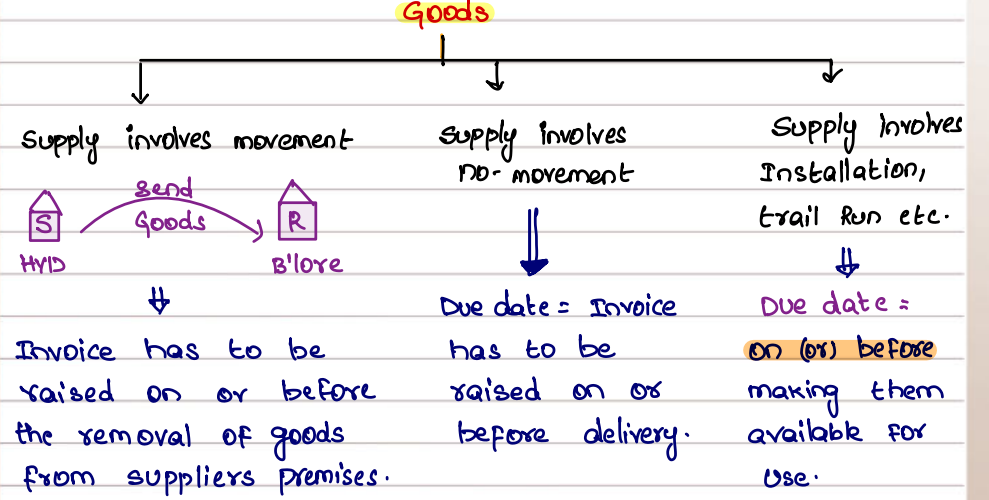 Goods
Supply involves movement
send
Goods
S
R
HYD
B'lore
Invoice has to be
raised on or before
the removal of goods
from suppliers premises.
Supply Involves
no-movement
Due date = Invoice
has to be
raised on or
before delivery.
Supply Involves
Installation,
trail Run etc.
Due date =
on (or) before
making them
available for
use.